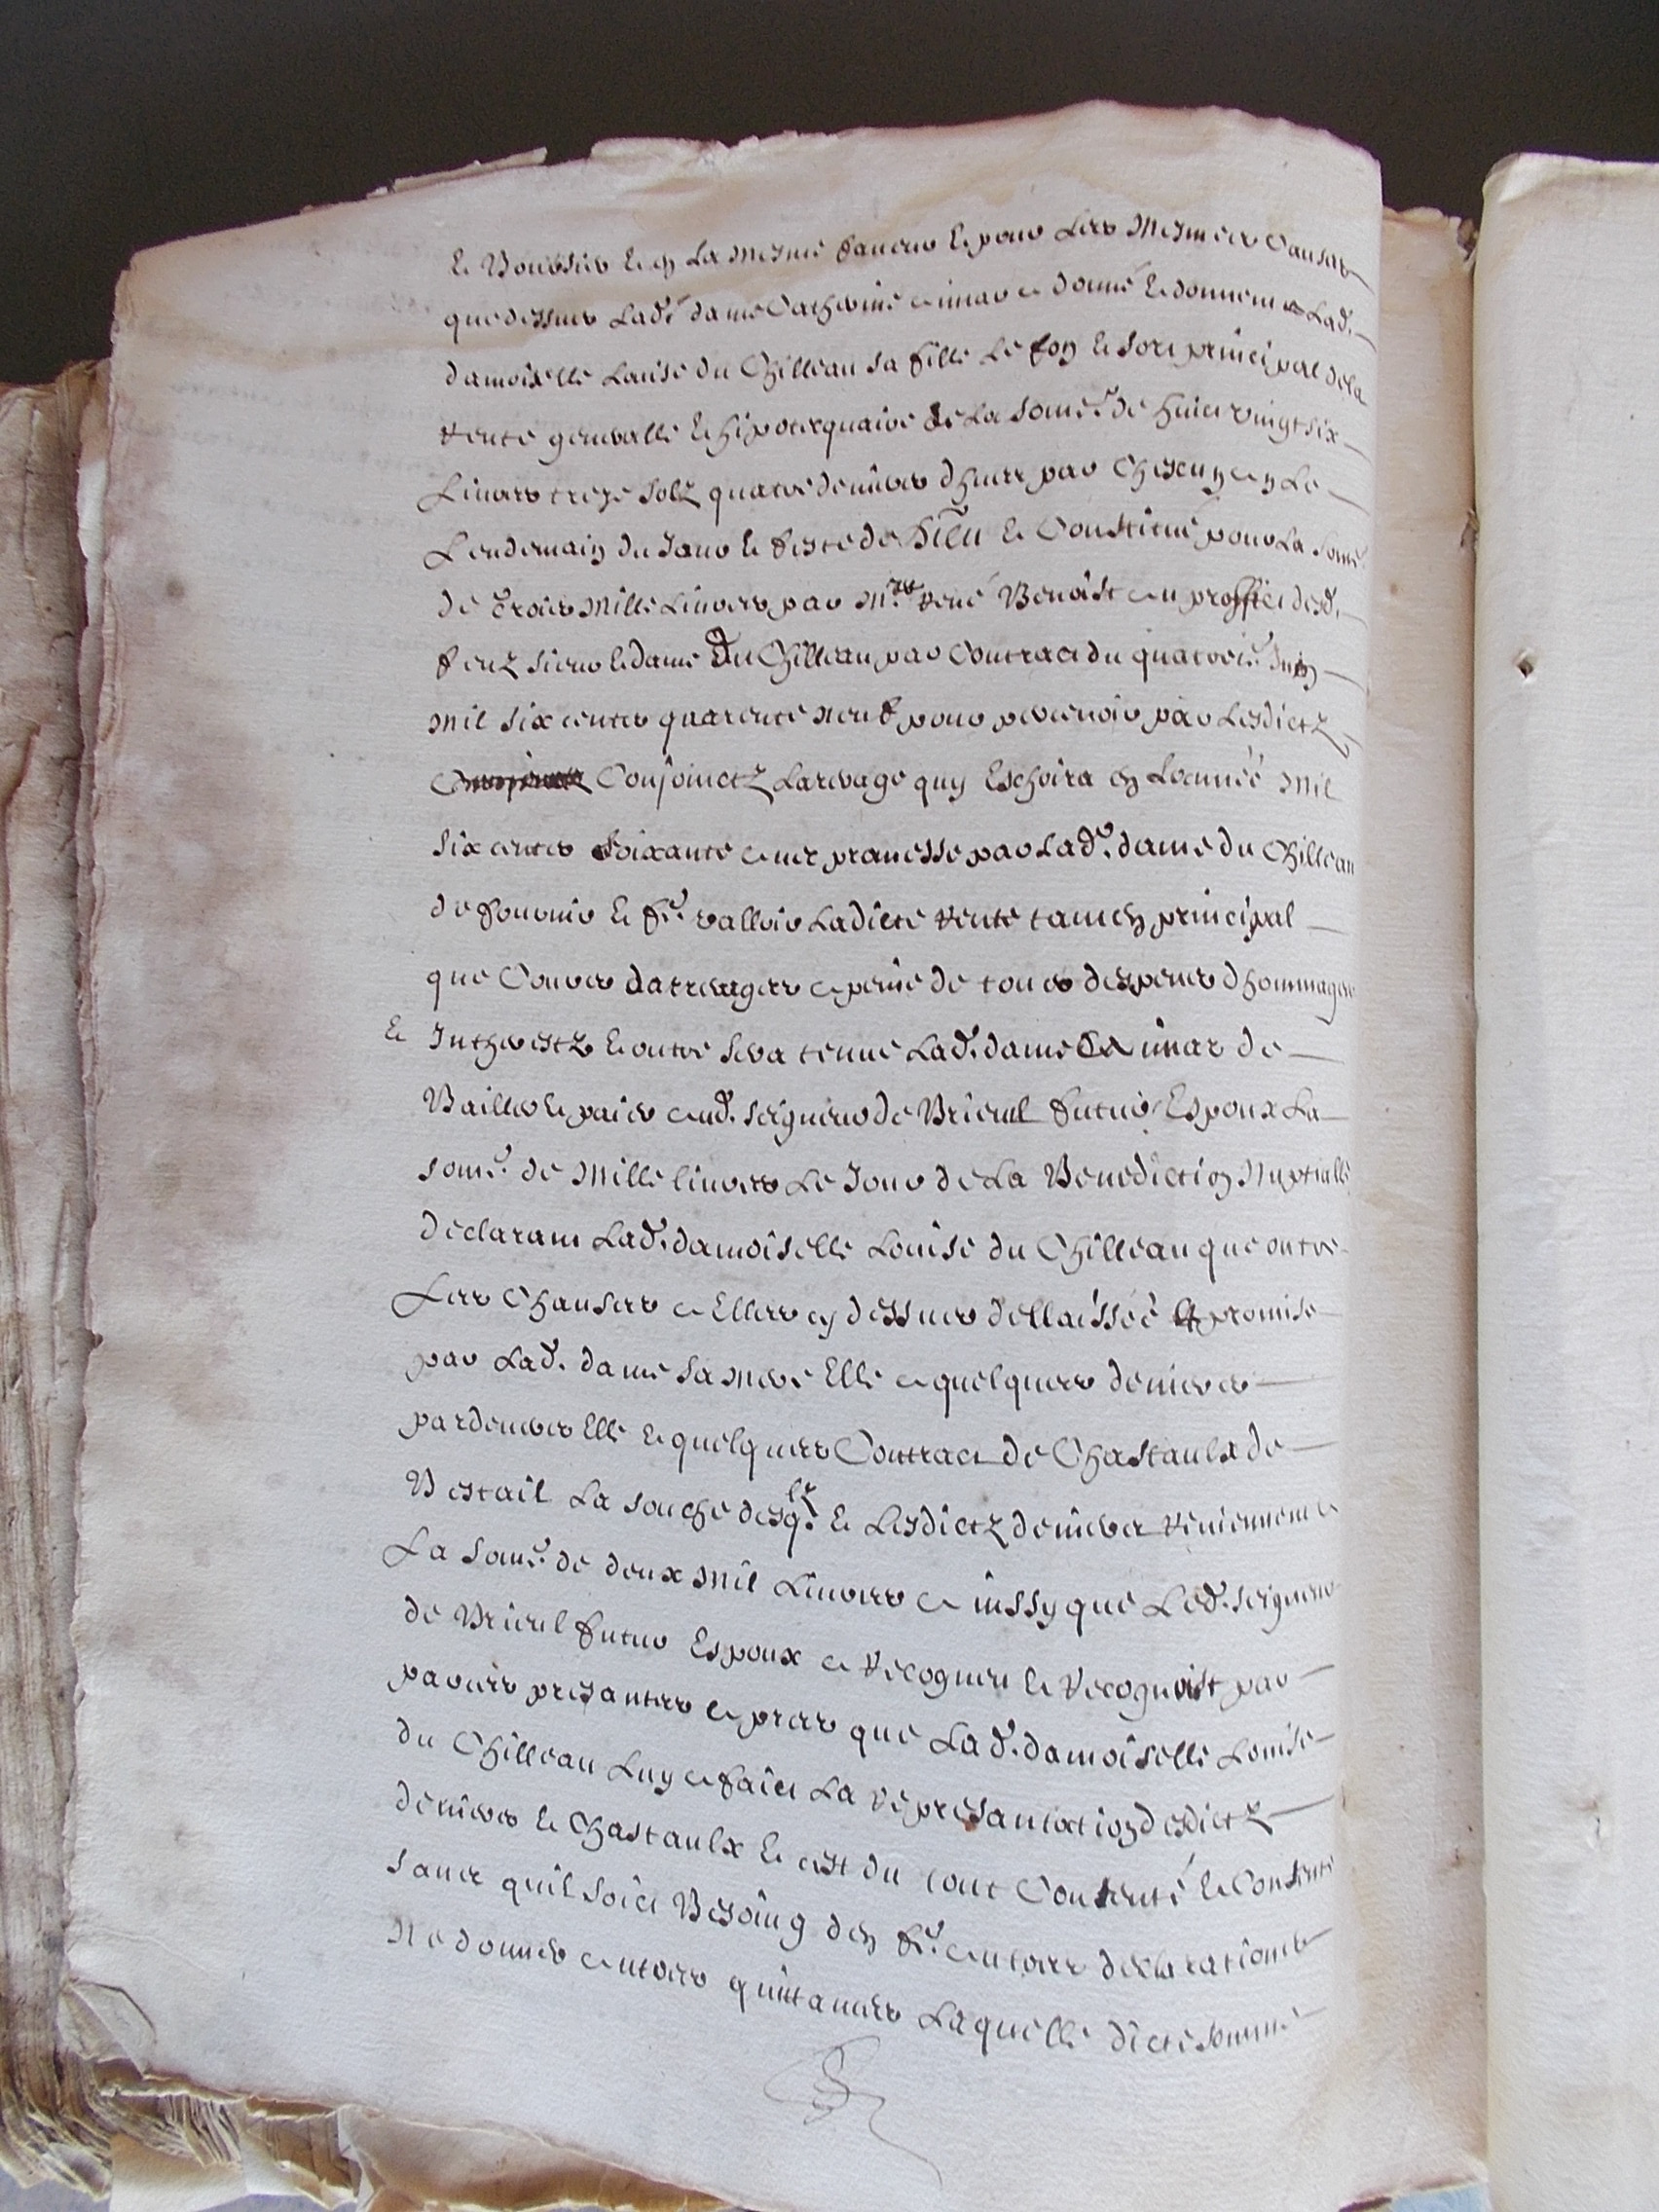 Et Poursuis et en la mesme faveur et pour les mesmes causes
que dessus lad. dame Catherine aimar a donné et donne a lad.
damoiselle Louise du Chilleau sa fille le fon et sort principal de la
rente generalle et hipotecquaire de la some de huict vingt six
Livres treze solz quatre deniers dheue par Chescun an le
Lendemain du Jour et feste de Dieu et Constitué pour la some
de trois mille livres par Mre René Benoist au proffict desd.
feuz sieur et dame du Chilleau par Contract du quatorie Juin
mil six centz quarente neuf pour percevoir par lesdictz
Conjoinctz larerage quy Eschoira en lannée mil
six centz soixante avec promesse par lad. dame du Chilleau
de fournir et fe valloir ladicte rente tant en principal
que Cours darrerages a peine de tous despens dhommages
et Intherestz et outre sera tenue lad. dame Aimar de
Bailler et paier aud. seigneur de Brieuil futur Espoux la
some de mille livres le Jour de la Benediction Nuptialle
declarant lad. damoiselle Louise du Chilleau que outre
les Chauses a Elles cy dessus dellaissée et promise
par lad. dame sa mere Elle a quelques deniers
pardevers Elle et quelques Contract de Chastaulx de
Bestail la souche desqlz et lesdictz deniers reviennent a
La some de deux mil livres ainssy que led. seigneur
de Brieuil futur Espoux a recogneu et recognoist par
par ces presantes apres que lad. damoiselle Louise
du Chilleau luy a faict la represantation desdictz
deniers et Chastaulx et cest du tout Contenté et Contente
sans quil soict Besoing den fe autres declarations
Ne donner autres quittances Laquelle dicte somme